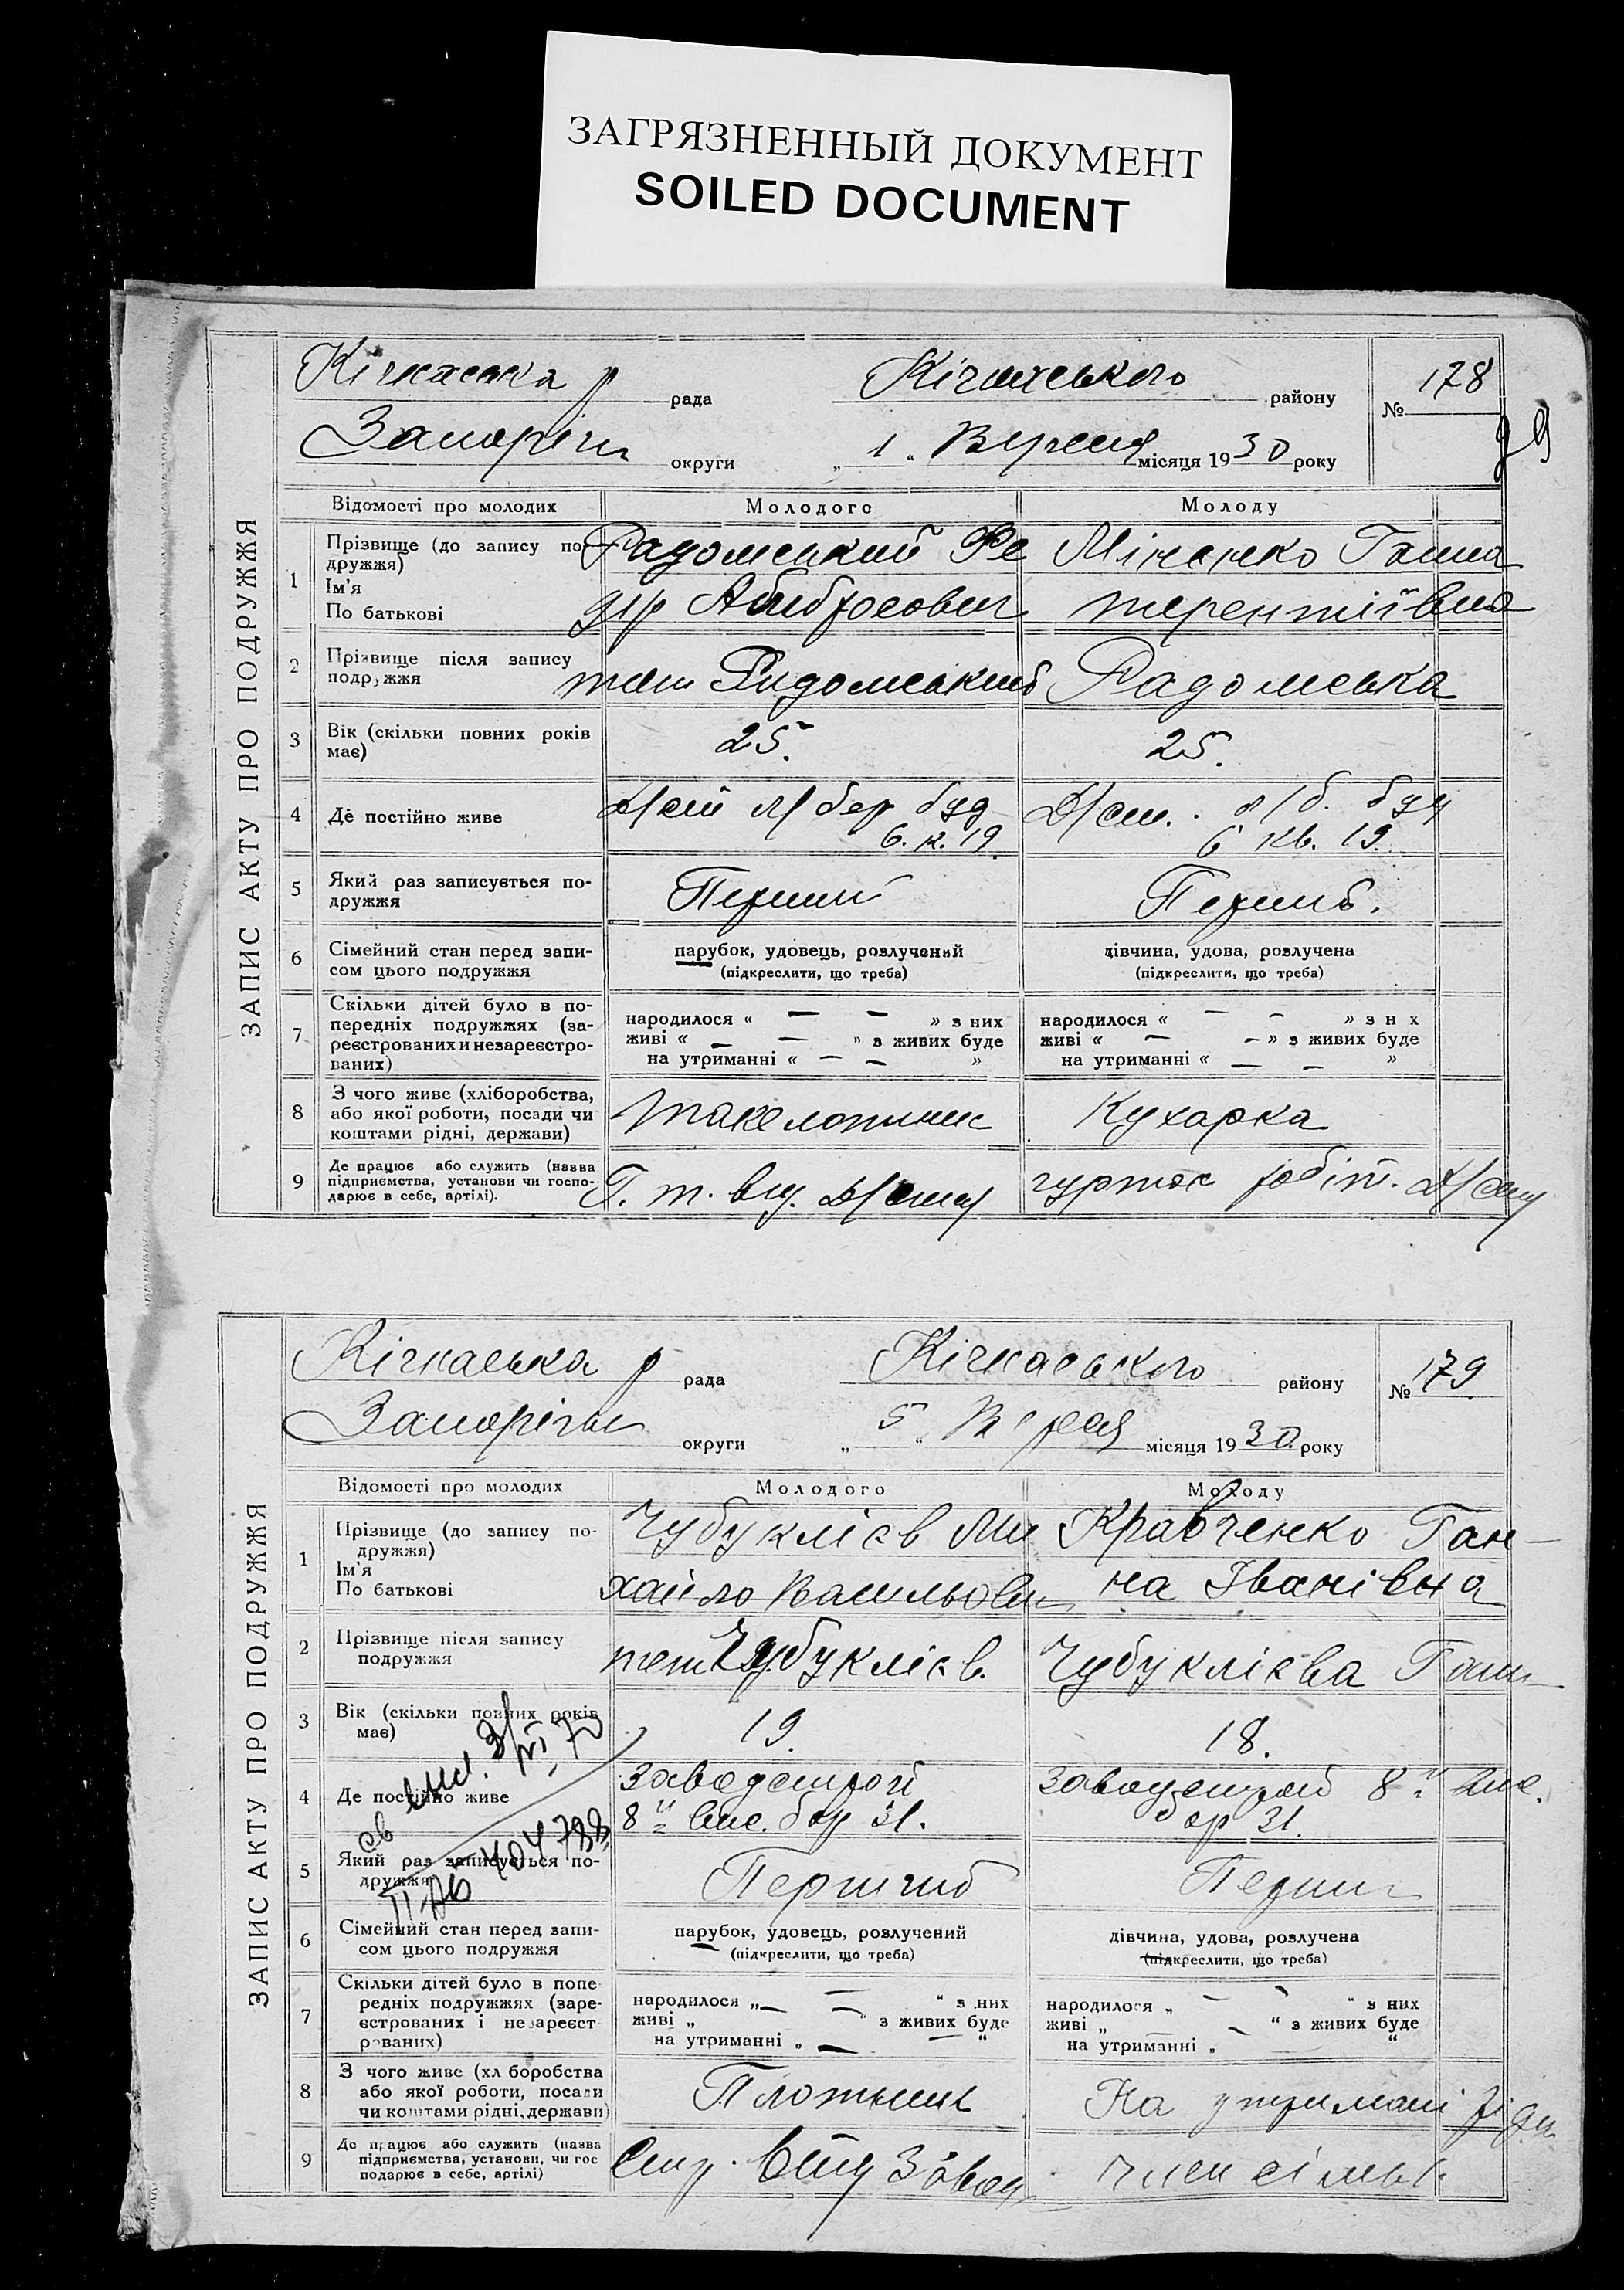 ЗАГРЯЗНЕННЫЙ ДОКУМЕНТ
SOILED DOCUMENT
ЗАПИС АКТУ ПРО ПОДРУЖЖЯ
Кічкаська р рада Кічкаського району № 178
99
Запоріч округи „ 1 “ Вересня місяця 1930 року
Відомості про молодих Молодого Молоду
1 Прізвище (до запису по-
дружжя)
Ім'я
По батькові
Радомський Фе
дір Амбросович
Міненко Ганна
терентіївна
2 Прізвище після запису
подружжя
той Радомський Радомська
3 Вік (скільки повних років
має)
25. 25.
4 Де постійно живе
Д/ст л/бер буд
6. к. 19.
Д/ст. л/б. буд
6 кв. 19.
5 Який раз записується по-
дружжя
Перший Перший.
6 Сімейний стан перед запи-
сом цього подружжя
парубок, удовець, розлучений
(підкреслити, що треба)
дівчина, удова, розлучена
(підкреслити, що треба)
7 Скільки дітей було в по-
передніх подружжях (за-
реєстрованих и незареєстро-
ваних)
народилося « — — » з них
живі « — — » з живих буде
на утриманні « — — »
народилося « — — » з н х
живі « — — » з живих буде
на утриманні « — — »
8 З чого живе (хліборобства,
або якої роботи, посади чи
коштами рідні, держави)
Такелотник Кухарка
9 Де працює або служить (назва
підприємства, установи чи госпо-
дарює в себе, артілі).
Г. т. від. Д/стр
гурток робіт. Д/стр
ЗАПИС АКТУ ПРО ПОДРУЖЖЯ
Кічкаська р рада Кічкаського району № 179.
Запорічы округи „ 5 “ Вересня місяця 1930 року
Відомості про молодих Молодого Молоду
1 Прізвище (до запису по-
дружжя)
Ім'я
По батькові
Чубуклієв Ми
хайло Васильович
Кравченко Ган-
на Іванівна
2 Прізвище після запису
подружжя
той Чубуклієв. Чубуклієва Ганн
3 Вік (скільки повних років
має)
19. 18.
4 Де постійно живе
Заводстрой
8й вис. бар 31.
Заводстрой 8й вис.
бар 31.
5 Який раз записується по-
дружжя
Перший Перший
II АБ 404788
6 Сімейний стан перед запи-
сом цього подружжя
парубок, удовець, розлучений
(підкреслити, що треба)
дівчина, удова, розлучена
(підкреслити, що треба)
7 Скільки дітей було в попе-
редніх подружжях (заре-
єстрованих і незареєст-
рованих)
народилося „ — — “ з них
живі „ — “ з живих буде
на утриманні „ — — “
народилося „ — — “ з них
живі „ — — “ з живих буде
на утриманні „ “
8 З чого живе (хл боробства
або якої роботи, посади
чи коштами рідні, держави)
Плотник На утримані рідн
9 Де працює або служить (назва
підприємства, установи, чи гос
подарює в себе, артілі)
Завод
член сімьї